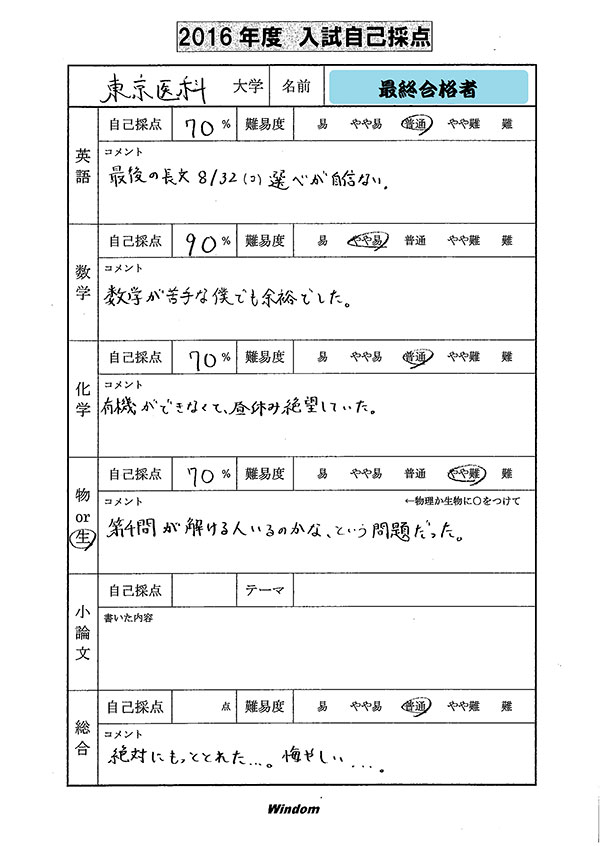 2016年度 入試自己採点
東京医科 大学 名前 最終合格者
英語 自己採点 70% 難易度 易 やや易 普通 やや難 難
コメント
最後の長文 8/32 (コ) 選べが自信ない.
数学 自己採点 90% 難易度 易 やや易 普通 やや難 難
コメント
数学が苦手な僕でも余裕でした。
化学 自己採点 70% 難易度 易 やや易 普通 やや難 難
コメント
有機ができなくて、昼休み絶望していた。
物or生 自己採点 70% 難易度 易 やや易 普通 やや難 難
コメント ←物理か生物に○をつけて
第4問が解ける人いるのかな、という問題だった。
小論文 自己採点 テーマ
書いた内容
総合 自己採点 点 難易度 易 やや易 普通 やや難 難
コメント
絶対にもっととれた…。悔やしい…。
Windom